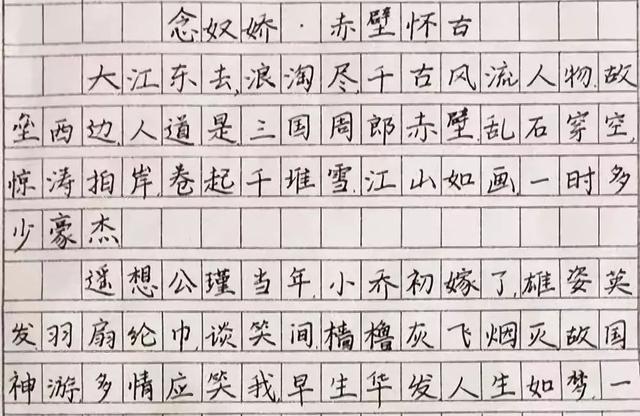 念奴娇·赤壁怀古
大江东去,浪淘尽,千古风流人物.故
垒西边,人道是,三国周郎赤壁.乱石穿空,
惊涛拍岸,卷起千堆雪.江山如画,一时多
少豪杰
遥想公瑾当年,小乔初嫁了,雄姿英
发.羽扇纶巾,谈笑间,樯橹灰飞烟灭.故国
神游,多情应笑我,早生华发.人生如梦,一